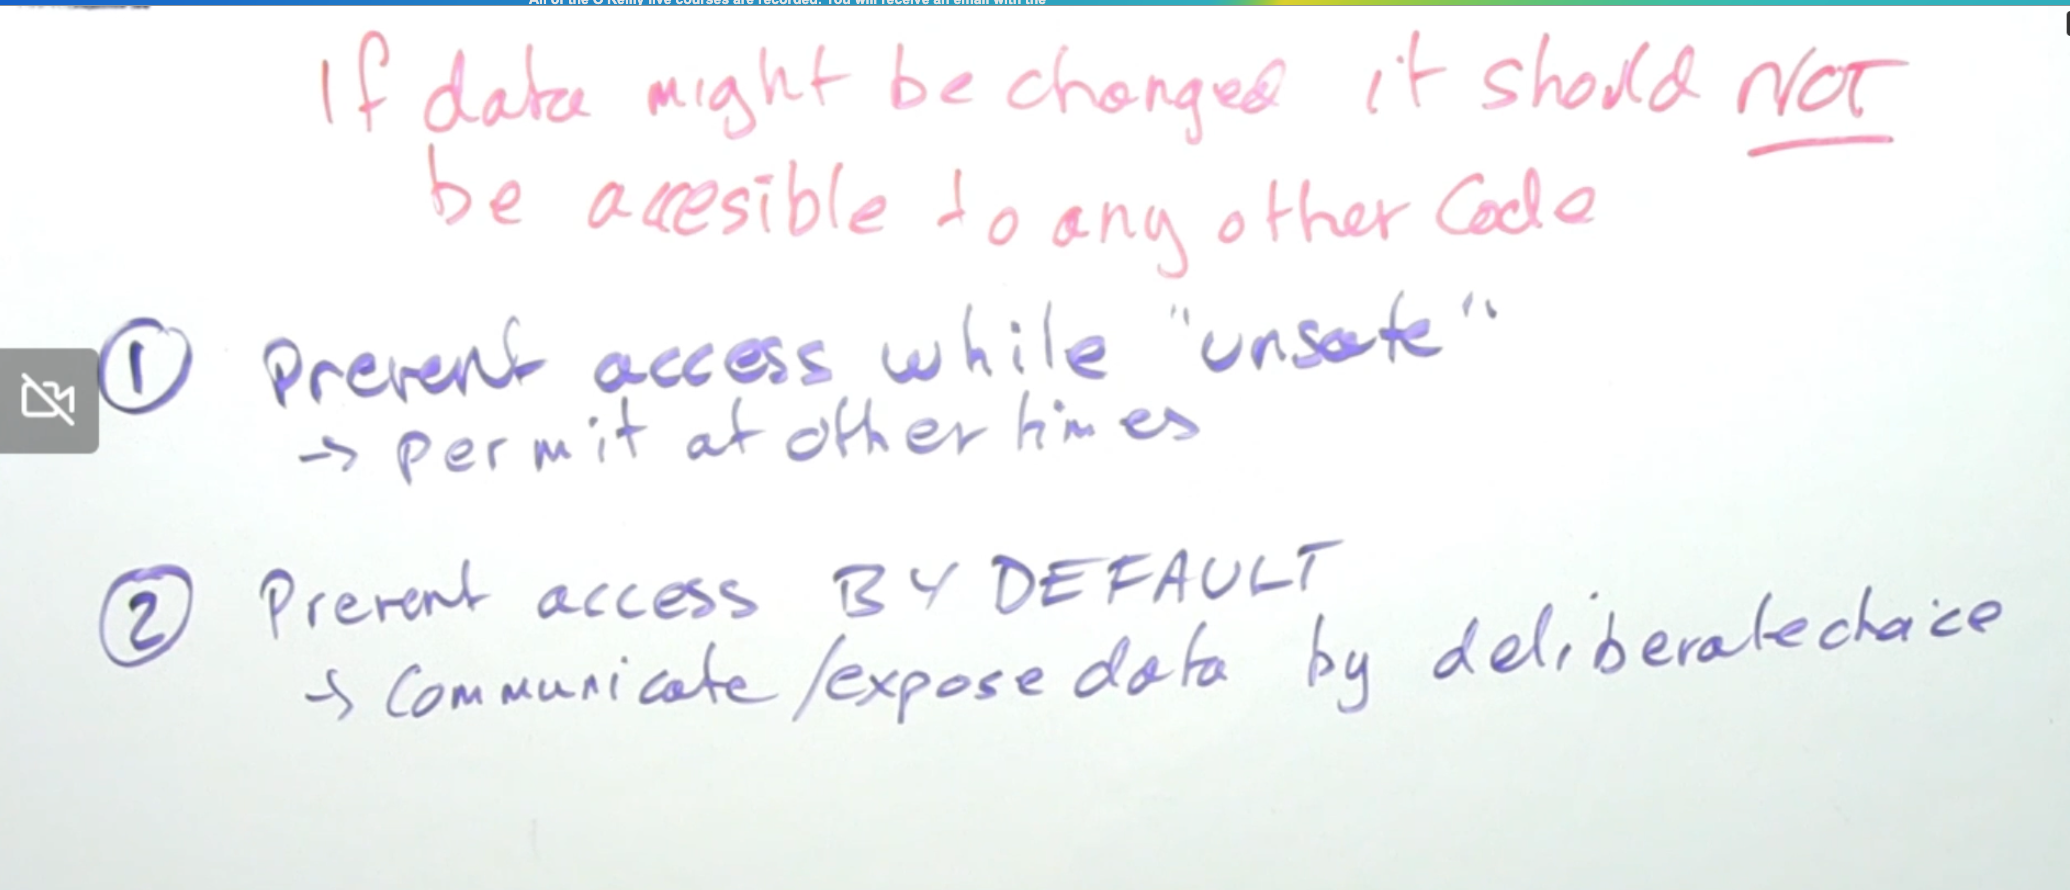 All of the O'Reilly live courses are recorded. You will receive an email with the
If data might be changed it should NOT
be accesible to any other Code
① Prevent access while "unsafe"
→ permit at other times
② Prevent access BY DEFAULT
→ Communicate/expose data by deliberate choice